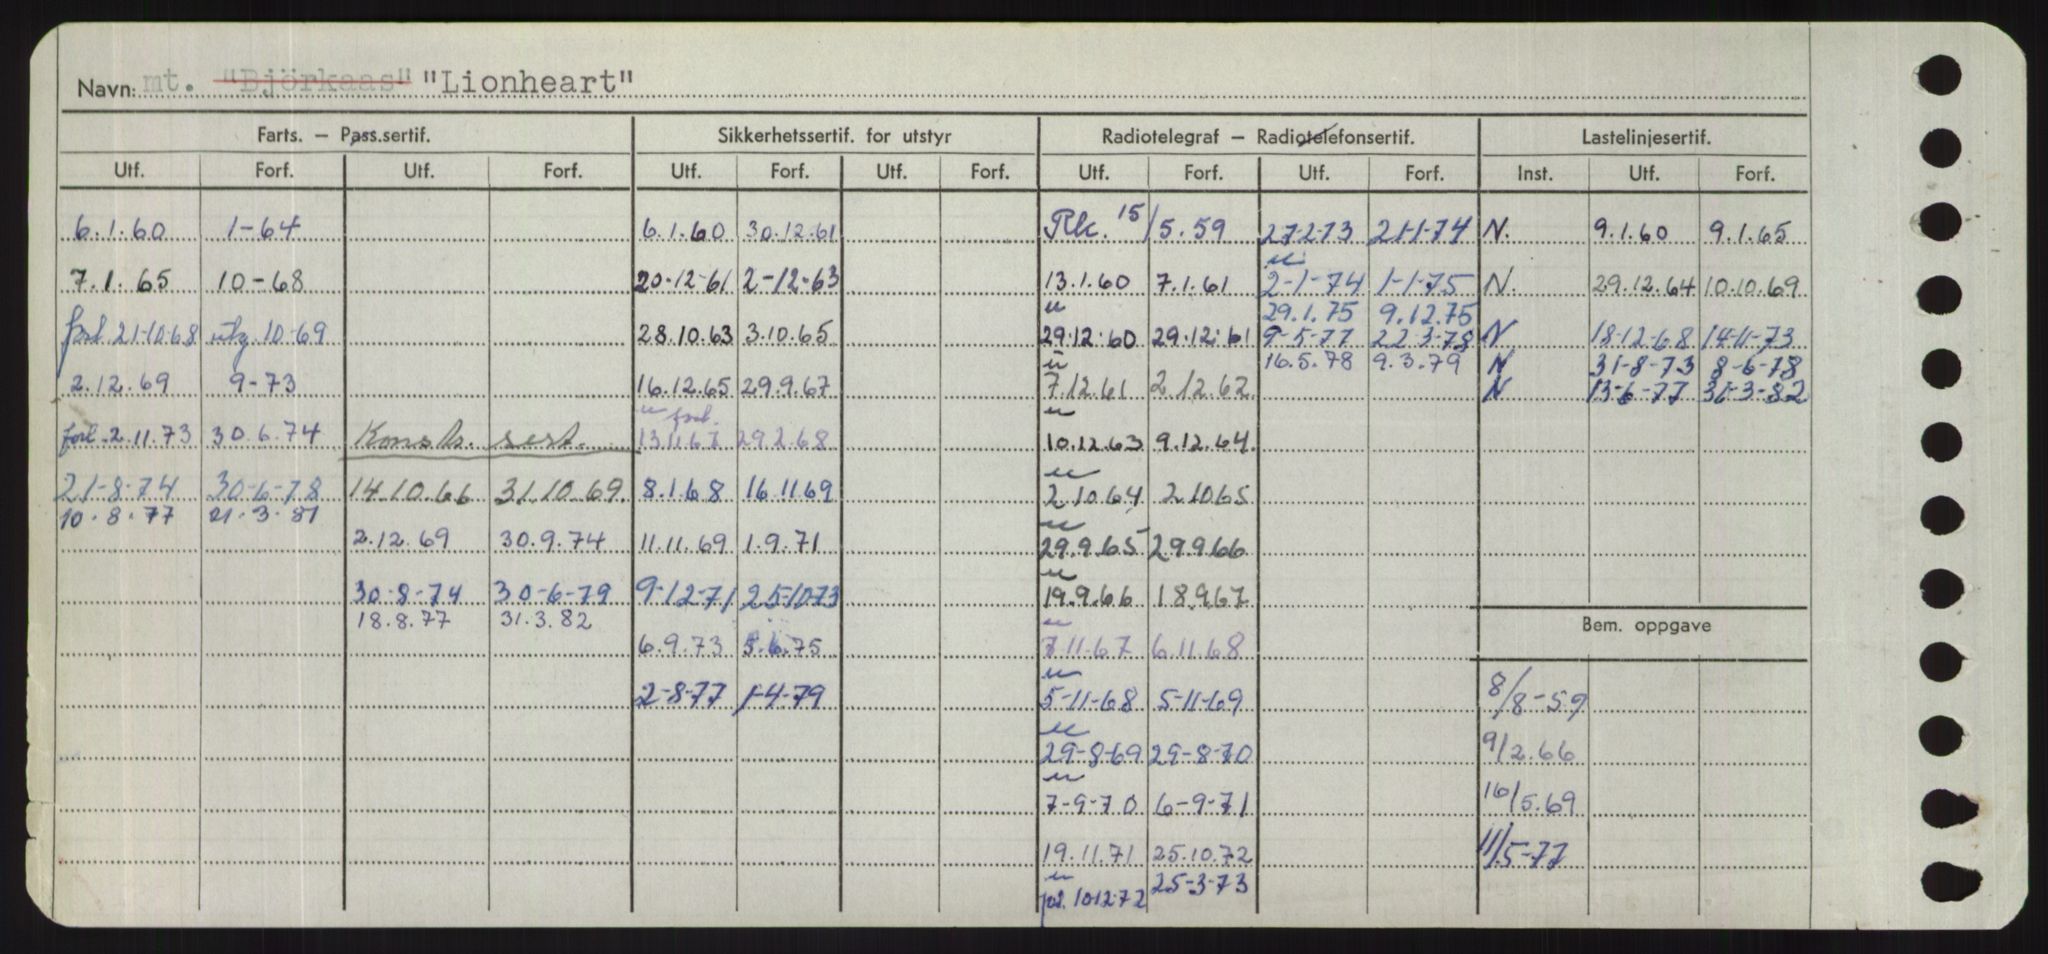 Navn: mt. "Björkaas" "Lionheart"
Farts. — Pass.sertif. Sikkerhetssertif. for utstyr Radiotelegraf — Radiotelefonsertif. Lastelinjesertif.
Utf. Forf. Utf. Forf. Utf. Forf. Utf. Forf. Utf. Forf. Utf. Forf. Inst. Utf. Forf.
6.1.60 1-64 6.1.60 30.12.61 Rk. 15/5.59 27-2-73 21-1-74 N. 9.1.60 9.1.65
7.1.65 10-68 20-12-61 2-12-63 13.1.60 7.1.61 2-1-74 1-1-75 N. 29.12.64 10.10.69
29.1.75 9.12.75
forl. 21-10-68 utg. 10-69 28.10.63 3.10.65 29.12.60 29.12.61 9-5-77 22-3-78 N 18-12-68 14-11-73
16.5.78 9.3.79 N 31-8-73 8-6-78
2.12.69 9-73 16.12.65 29.9.67 7.12.61 2.12.62 N 13-6-77 31-3-82
forl. 2.11.73 30.6.74 Konstr. sert. forl. 13.11.67 29.2.68 10.12.63 9.12.64.
21-8-74 30-6-78 14.10.66 31.10.69. 8.1.68 16.11.69 2.10.64 2.10.65
10.8.77 21.3.81
2.12.69 30.9.74 11.11.69 1.9.71 29.9.65 29.9.66
30-8-74 30-6-79 9-12-71 25-10-73 19.9.66 18.9.67
18.8.77 31.3.82
Bem. oppgave
6.9.73 5.6.75 7.11.67 6.11.68
2-8-77 1-4-79 5-11-68 5-11-69 8/8-59
29-8-69 29-8-70 9/2.66
7-9-70 6-9-71 16/5.69
19.11.71 25.10.72 11/5-77
forl. 10-12-72 25-3-73